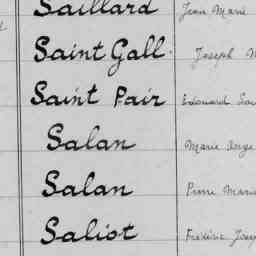 Saillard Jean Marie
Saint Gall. Joseph
Saint Pair Edouard
Salan Marie Ange
Salan Pierre Marie
Saliot Frédéric Joseph